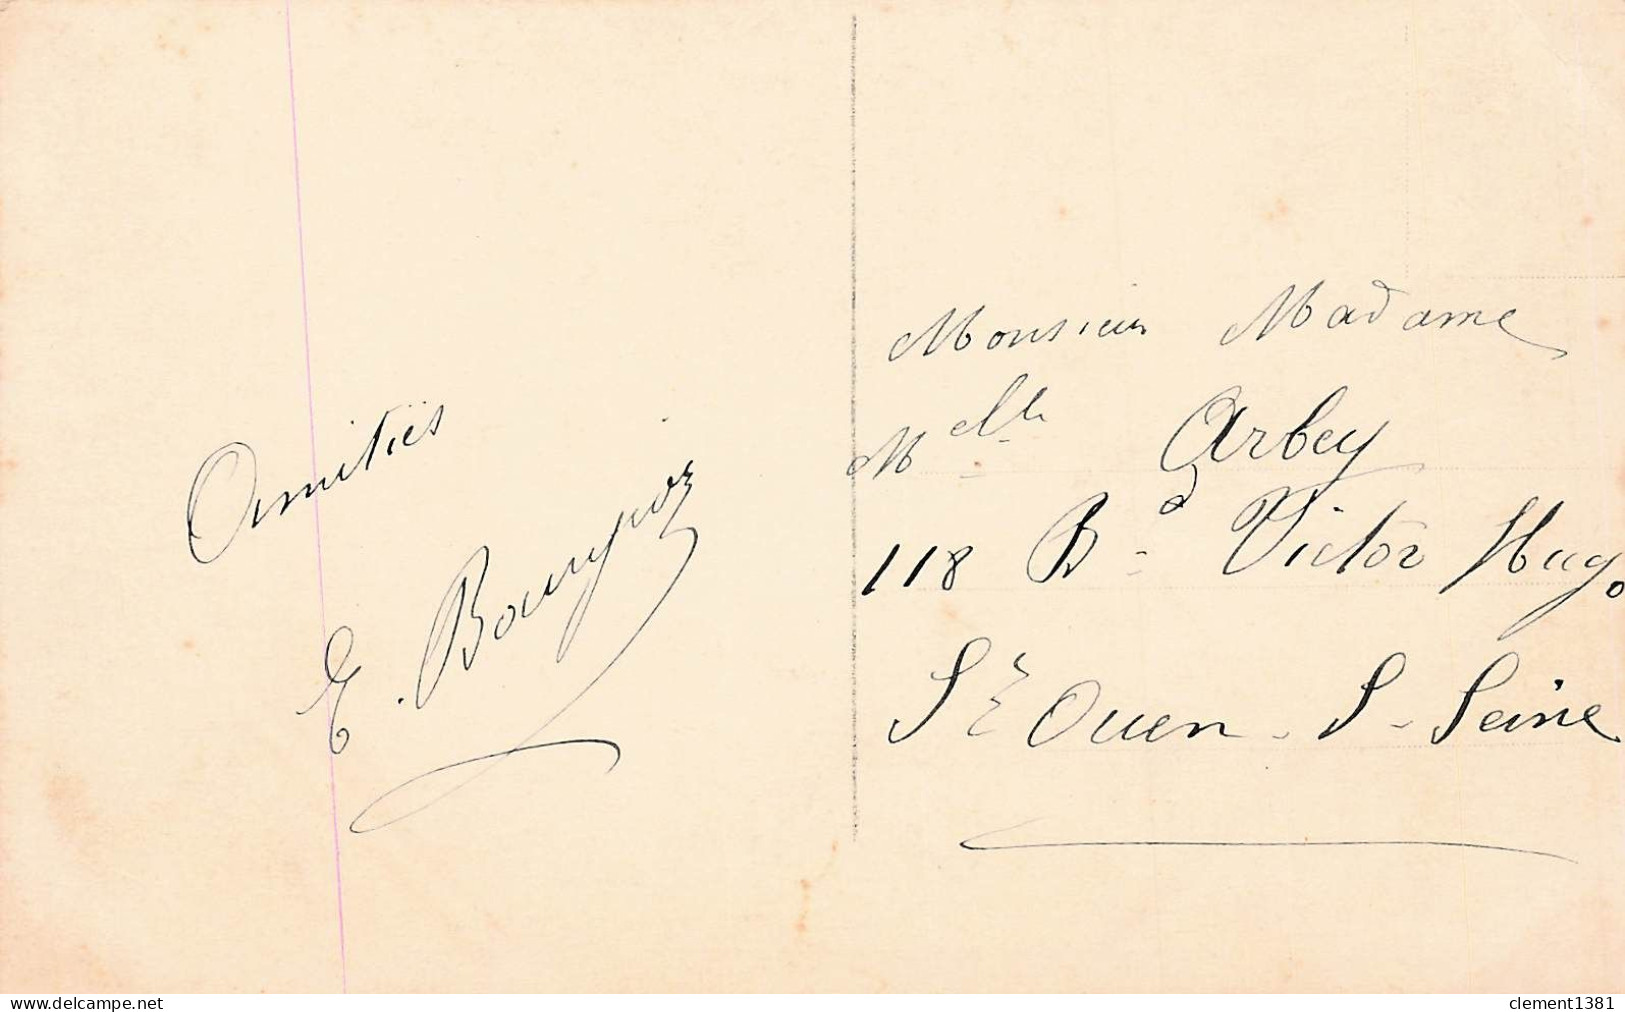 Amitiés
E.
Monsieur Madame
Melle Arbey
118 Bd Victor Hugo
St Ouen - S - Seine
www.delcampe.net
clement1381